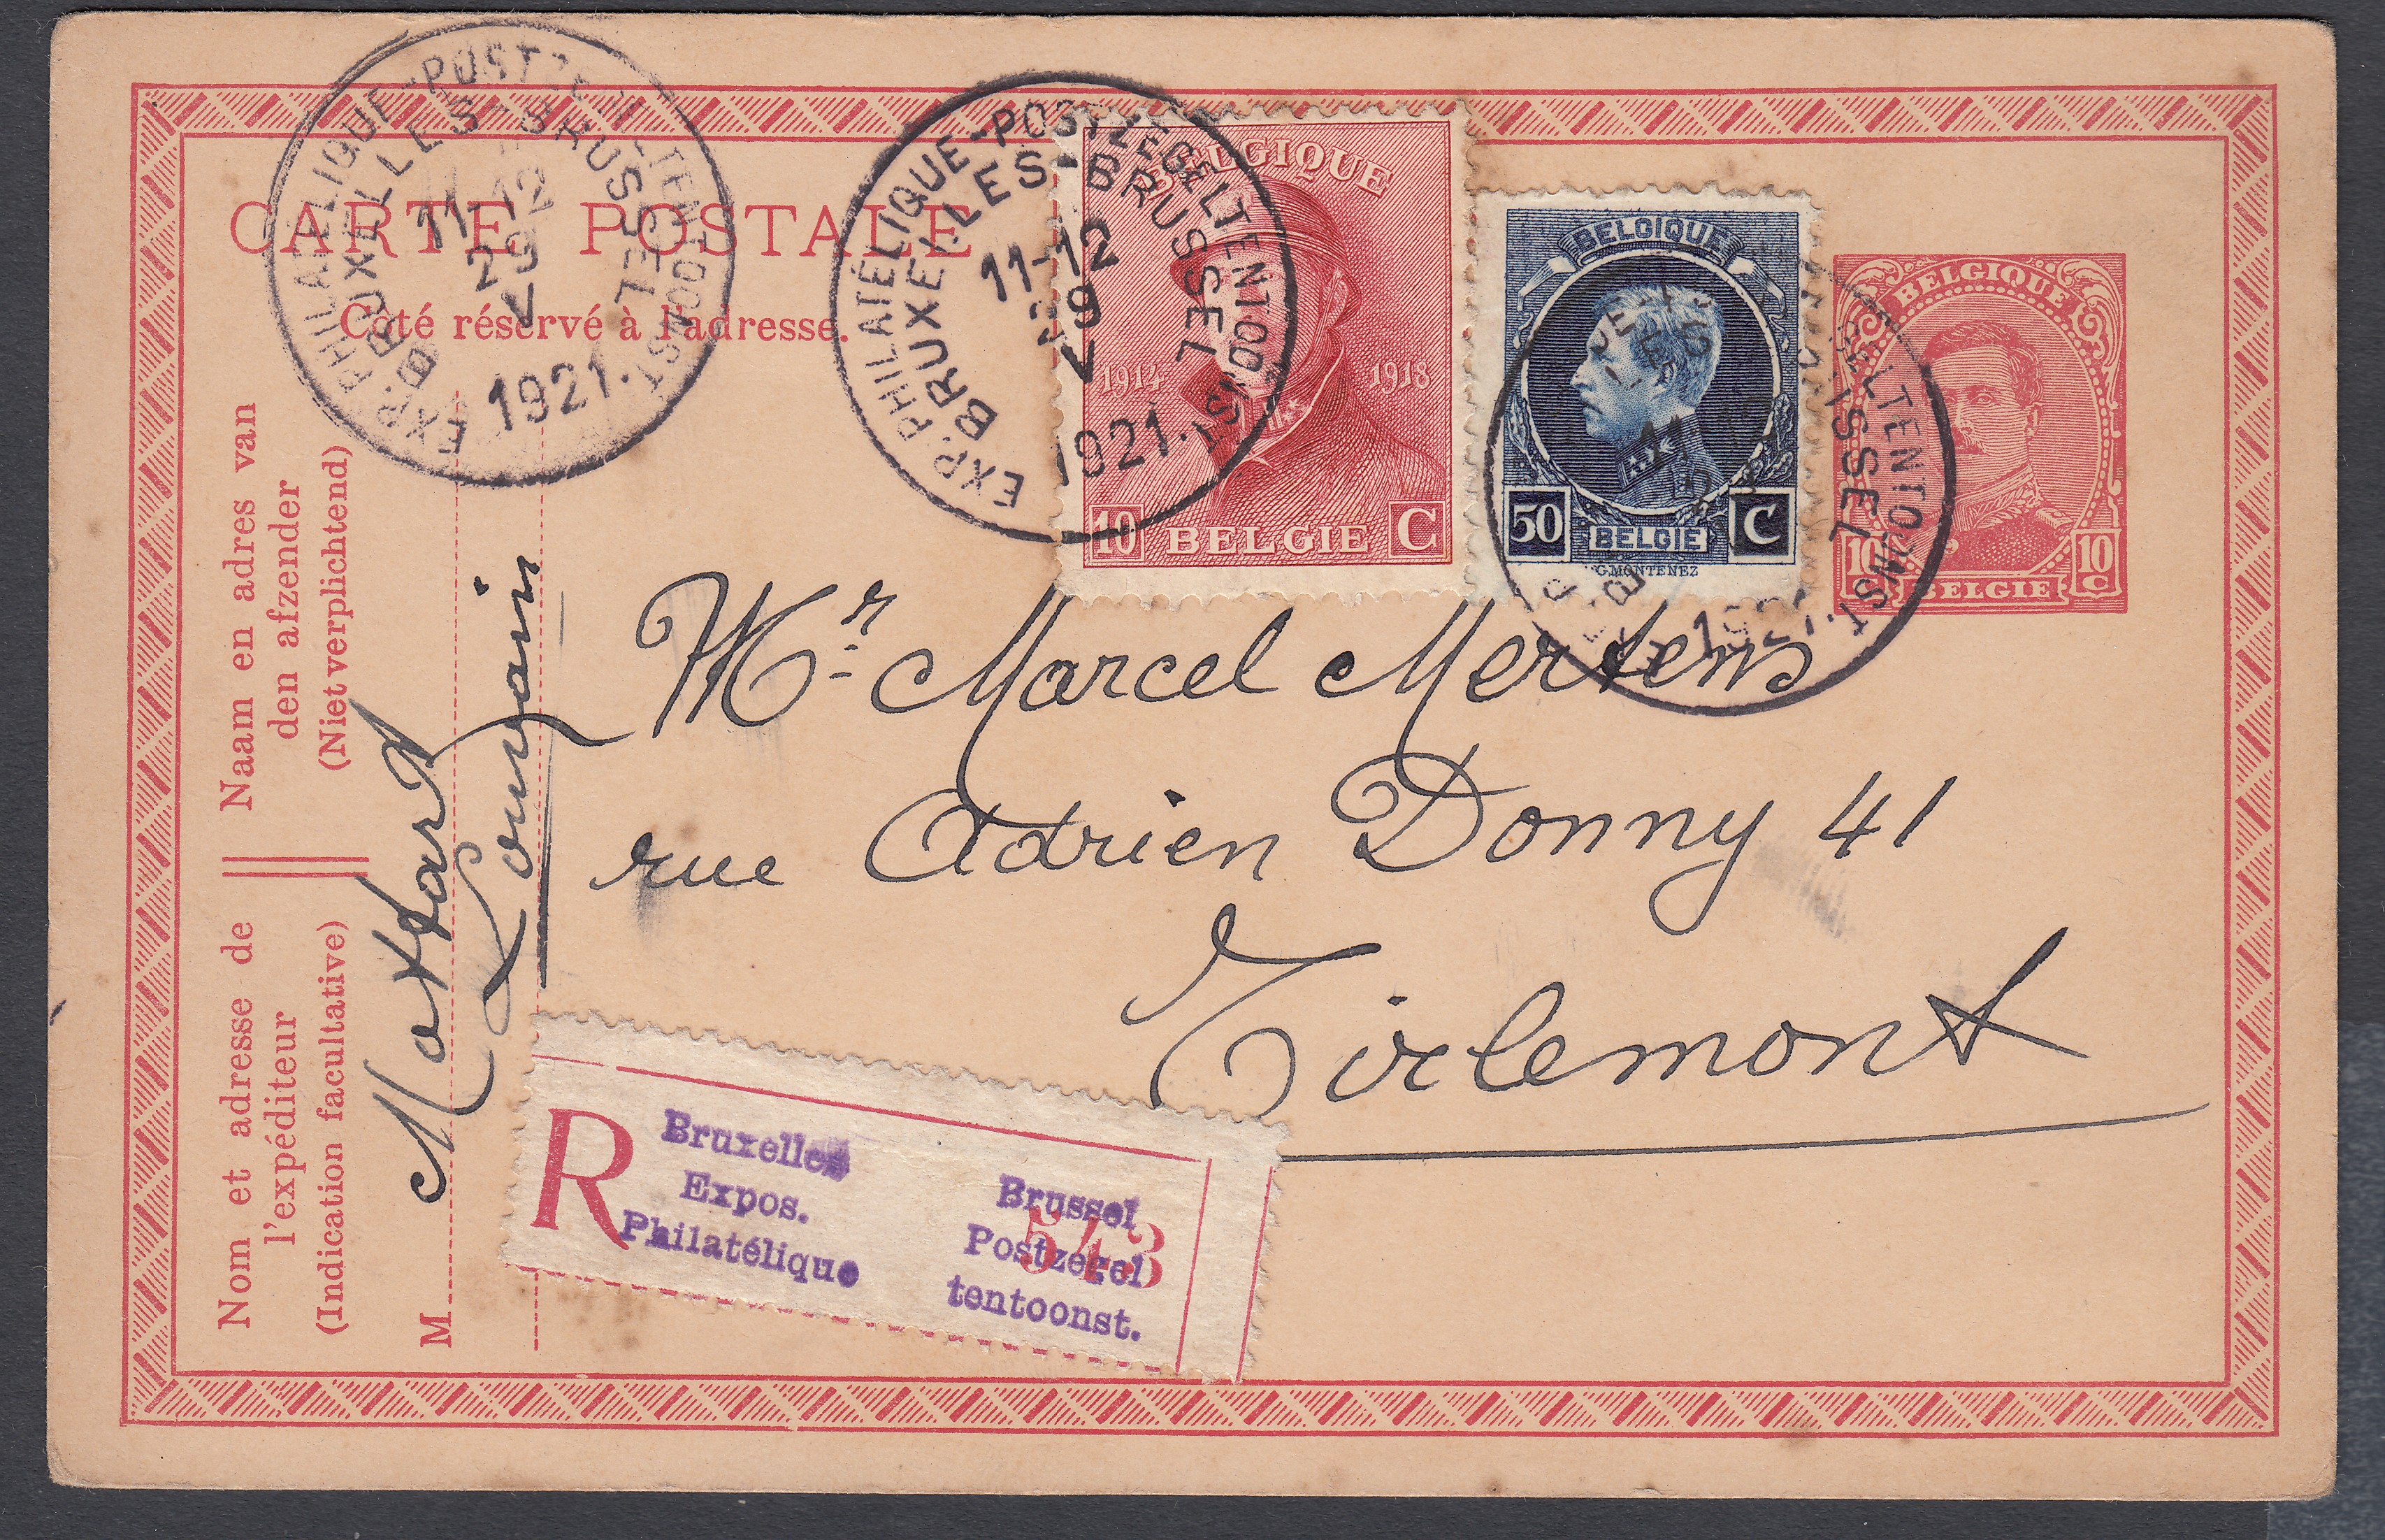 CARTE POSTALE
Côté réservé à l'adresse.
EXP. PHILATÉLIQUE-POSTZEGELTENTOONST
BRUXELLES-BRUSSEL
11-12
29
V
1921.
EXP. PHILATÉLIQUE-POSTZEGELTENTOONST
BRUXELLES-BRUSSEL
11-12
29
V
1921.
BELGIQUE
1914 1918
10 BELGIE C
BELGIQUE
50 BELGIE C
G.MONTENEZ
BELGIQUE
10 C BELGIE 10 C
1921.
Naam en adres van
den afzender
(Niet verplichtend)
Nom et adresse de
l'expéditeur
(Indication facultative)
M
Mottard
Louvain
Mr Marcel Mertens
rue Adrien Donny 41
Tirlemont
R
Bruxelles
Expos.
Philatélique
Brussel
Postzegel
tentoonst.
543